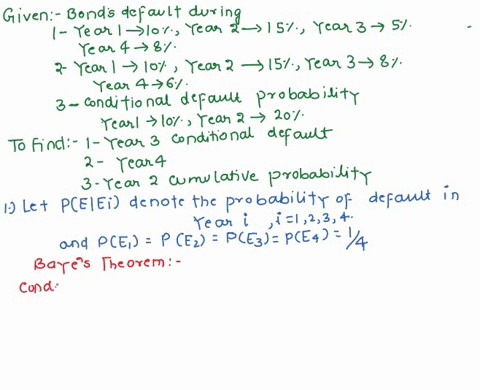 Given:- Bond's default during
1- Year 1 → 10%, Year 2 → 15%, Year 3 → 5%
Year 4 → 8%
2- Year 1 → 10%, Year 2 → 15%, Year 3 → 8%
Year 4 → 6%
3- conditional default probability
Year 1 → 10%, Year 2 → 20%
To Find:- 1- Year 3 conditional default
2- Year 4
3- Year 2 cumulative probability
1.) Let P(E|Ei) denote the probability of default in
Year i, i=1,2,3,4.
and P(E1) = P(E2) = P(E3) = P(E4) = 1/4
Baye's Theorem:-
Cond: